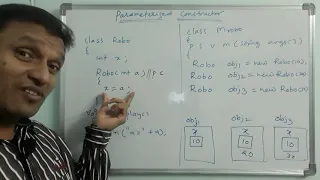 Parameterized Constructor
class Robo
{
int x;
Robo(int a) // p c
{
x = a;
class Mrobo
{
p s v m (String args[])
{
Robo obj1 = new Robo(10);
Robo obj2 = new Robo
Robo obj3 = new Robo
obj1 obj2 obj3
x x x
10 10 10
20 30